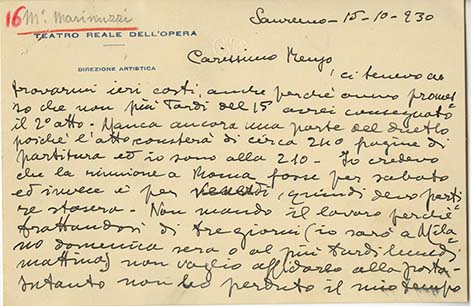 16 Mº Marinuzzi
Sanremo - 15-10-930
TEATRO REALE DELL'OPERA
Carissimo Renzo
DIREZIONE ARTISTICA
ci tenevo a
trovarmi ieri costì, anche perché avevo promes
so che non più tardi del 15 avrei consegnato
il 2º atto - Manca ancora una parte del duetto
poiché l'atto consterà di circa 240 pagine di
partitura ed io sono alla 210 - Io credevo
che la riunione a Roma fosse per sabato
ed invece è per venerdì, quindi devo parti
re stasera - Non mando il lavoro perché
trattandosi di tre giorni (io sarò a Mila
no domenica sera o al più tardi lunedì
mattina) non voglio affidarlo alla posta -
Intanto non ho perduto il mio tempo